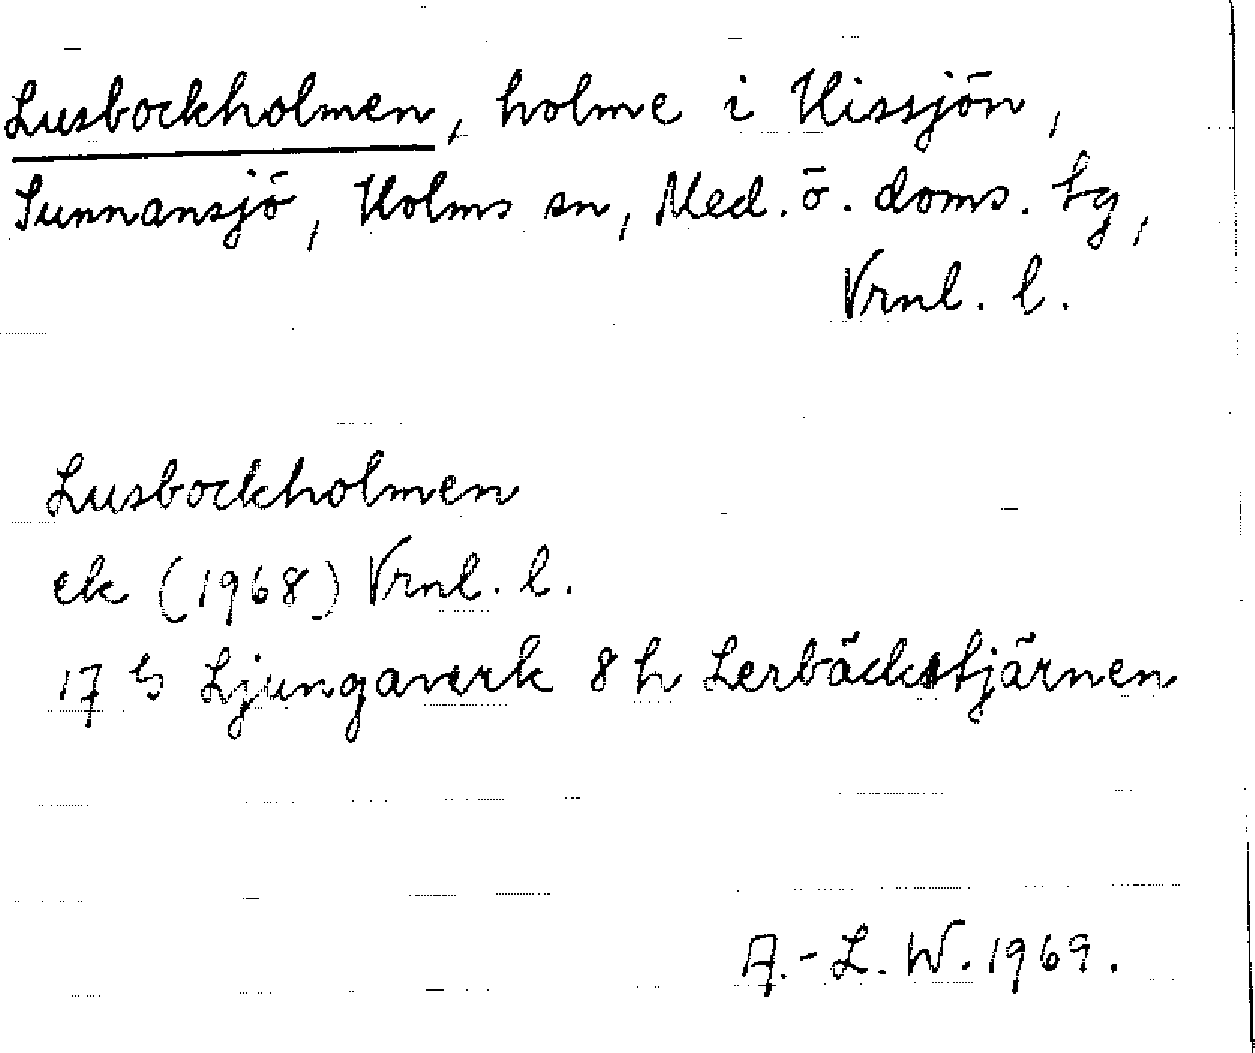 Lusbockholmen, holme i Hissjön,
Sunnansjö, Holms sn, Med. ö. doms. tg,
Vrnl. l.
Lusbockholmen
ek (1968) Vrnl. l.
17 G Ljungaverk 8 h Lerbäckstjärnen
A.-L. W. 1969.